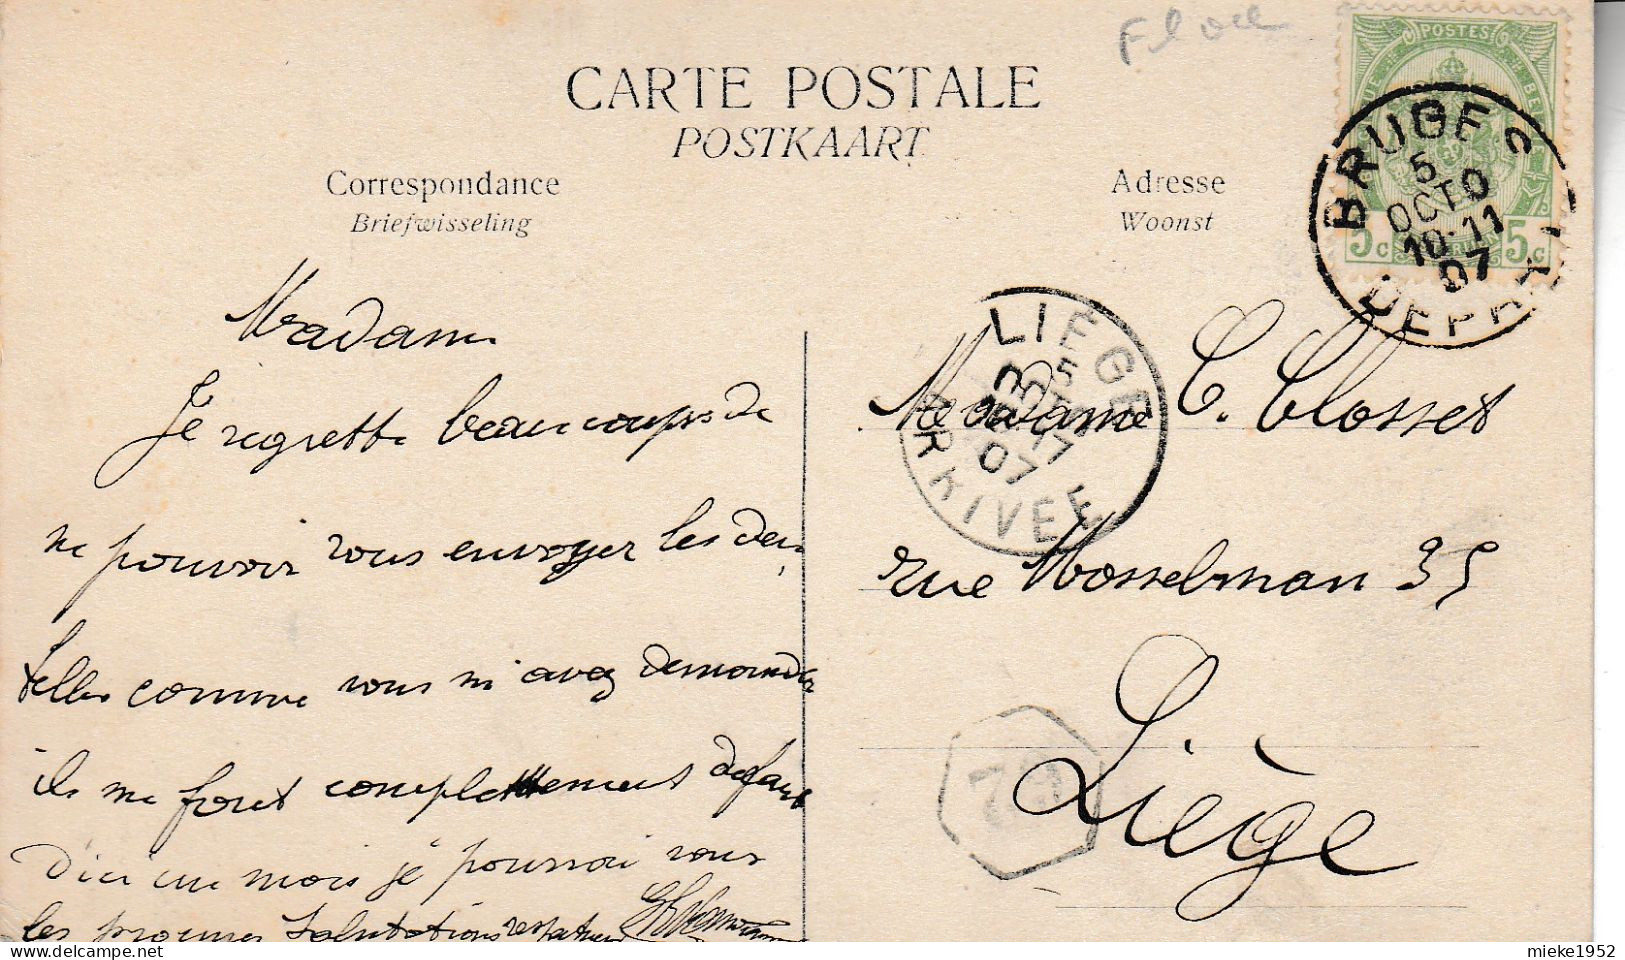 CARTE POSTALE
POSTKAART
Correspondance
Briefwisseling
Adresse
Woonst
POSTES
5c 5c
BRUGES
5
OCTO
10-11
07
DEPART
LIEGE
07
ARRIVEE
Madame
Je regrette beaucoups de
ne pouvoir vous envoyer les den,
telles comme vous m'avez demandé
ils me font complettement defaut
D'ici un mois je pourrai vous
les procurer Salutations
Madame C. Closset
rue Mosselman 35
Liège
mieke1952